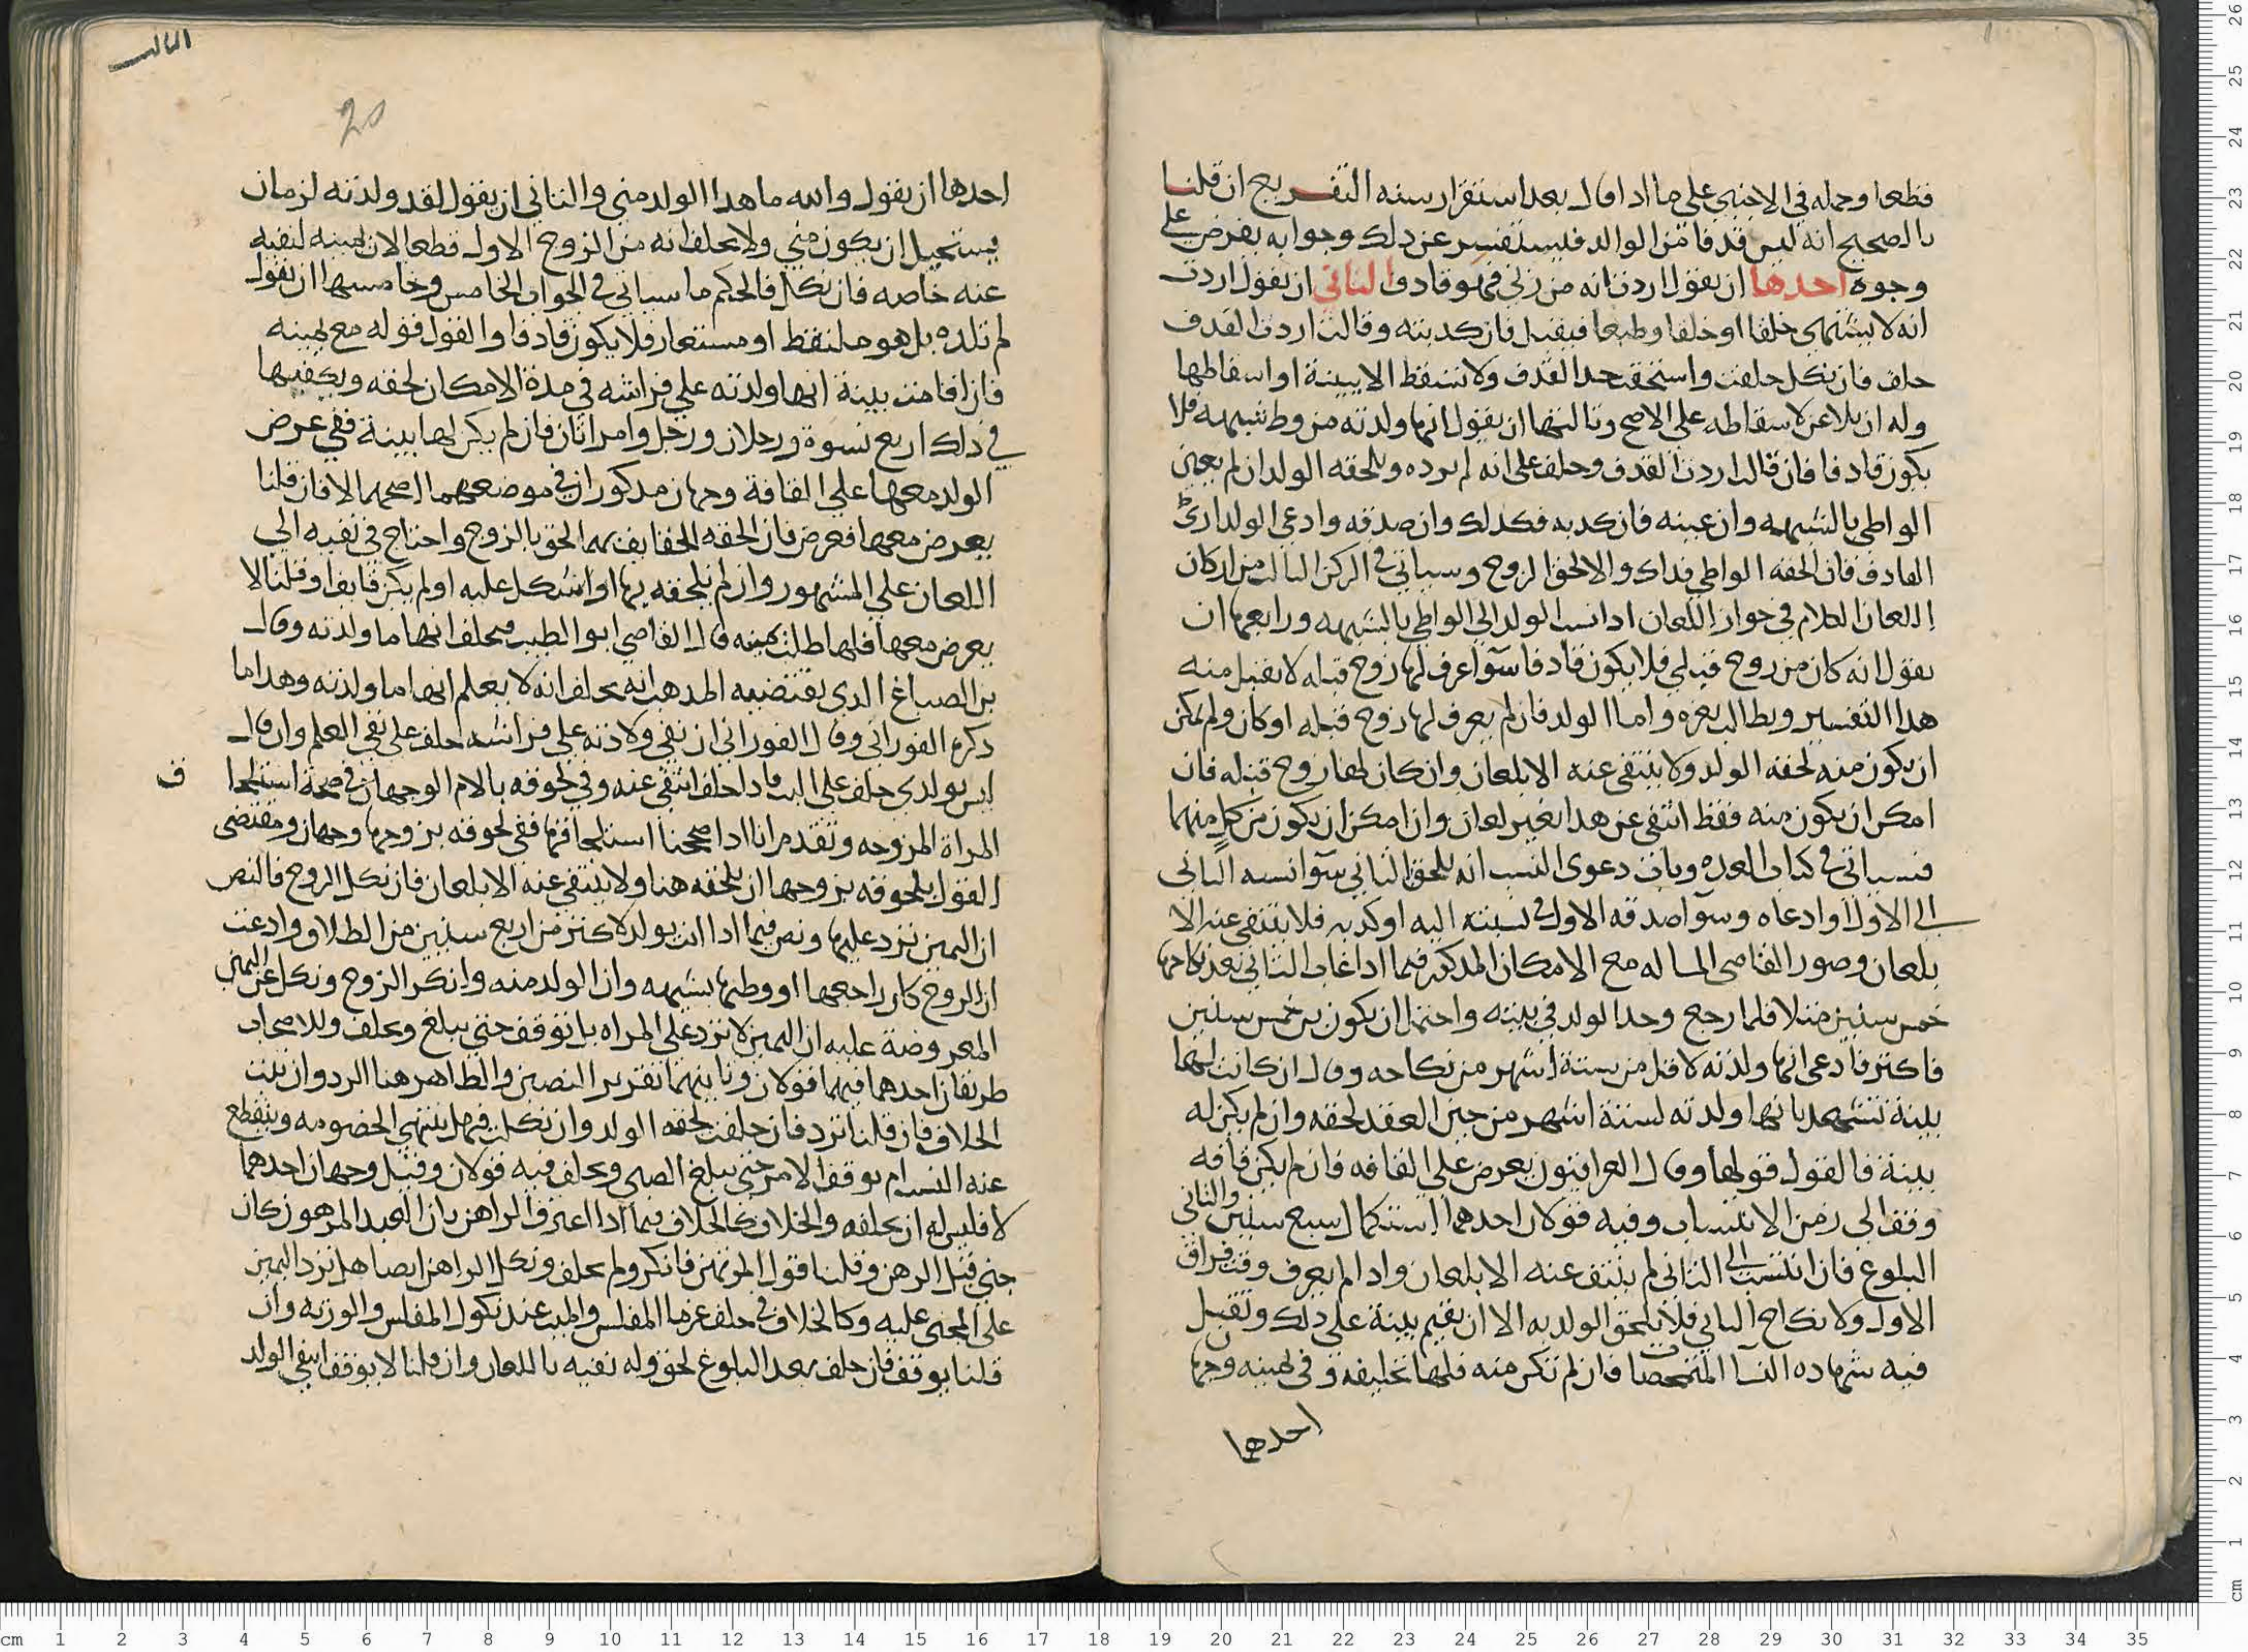 قطعا وحمله في الاجنبي على ما اذا قال بعد استقرار سنه التفريع ان قلنا
بالصحيح انه ليس قذفا من الوالد فليستفسر عن ذلك وجوابه يفرض على
وجوه احدها ان يقول اردت انه من زنى فهو قاذف الثاني ان يقول اردت
انه لا يشبهني خلقا او خلقا وطبعا فيقبل فان كذبته وقالت اردت القذف
حلف فان نكل حلفت واستحقت حد القذف ولا تسقط الا ببينة او اسقاطها
وله ان يلاعن لاسقاطه على الاصح وثالثها ان يقول انها ولدته من وطء شبهه فلا
يكون قاذفا فان قالت اردت القذف وحلف على انه لم يرده ويلحقه الولد ان لم يعين
الواطي بالشبهه وان عينه فان كذبه فكذلك وان صدقه وادعى الولد اري
القاذف فان الحقه الواطي فذاك والا لحق الزوج وسياتي في الركن الثالث من اركان
اللعان الكلام في جواز اللعان اذا نسب الولد الى الواطي بالشبهه ورابعها ان
يقول انه كان من زوج قبلي فلا يكون قاذفا سوآ عرف لها زوج قبله لا يقبل منه
هذا التفسير ويطالب بغيره واما الولد فان لم يعرف لها زوج قبله او كان ولم يمكن
ان يكون منه لحقه الولد ولا ينتفي عنه الا بلعان وان كان لها زوج قبله فان
امكن ان يكون منه فقط انتفى عن هذا بغير لعان وان امكن ان يكون من كل منهما
فسياتي في كتاب العدة وباب دعوى النسب انه يلحق الثاني سوآ انسبه الثاني
الى الاول او ادعاه وسوآ صدقه الاول في نسبته اليه او كذبه فلا ينتفي عنه الا
بلعان وصور القاضي المساله مع الامكان المذكور فيما اذا غاب الثاني بعد نكاحها
خمس سنين مثلا فلما رجع وجد الولد في بيته واحتمل ان يكون بن خمس سنين
فاكثر فادعى انها ولدته لاقل من ستة اشهر من نكاحه وقال ان كانت لها
بينة تشهد بانها ولدته لستة اشهر من حين العقد لحقه وان لم يكن له
بينة فالقول قولها وقال العراقيون يعرض على القافه فان لم يكن قافه
وقف الى زمن الانتساب وفيه قولان احدهما استكمال سبع سنين والثاني
البلوغ فان انتسب الى الثاني لم ينتف عنه الا بلعان واذا لم يعرف وقت فراق
الاول ولا نكاح الثاني فلا يلحق الولد به الا ان يقيم بينة على ذلك وتقبل
فيه شهاده النسآ المتمحضات فان لم تكن منه فلها تحليفه وفي يمينه وجها
احدها
الثالث
20
احدها ان يقول والله ما هذا الولد مني والثاني ان يقول لقد ولدته لزمان
يستحيل ان يكون مني ولا يحلف انه من الزوج الاول قطعا لان يمينه لنفيه
عنه خاصه فان نكل فالحكم ما سياتي في الجواب الخامس وخامسها ان يقول
لم تلده بل هو ملتقط او مستعار فلا يكون قاذفا والقول قوله مع يمينه
فان اقامت بينة انها ولدته على فراشه في مدة الامكان لحقه ويكفيها
في ذلك اربع نسوة ورجلان ورجل وامراتان فان لم يكن لها بينة ففي عرض
الولد معها على القافة وجهان مذكوران في موضعهما اصحهما لا فان قلنا
يعرض معها فعرض فان الحقه القايف بها لحق بالزوج واحتاج في نفيه الى
اللعان على المشهور وان لم يلحقه بها او اشكل عليه او لم يكن قايف او قلنا لا
يعرض معها فلها طلب يمينه قال القاضي ابو الطيب فيحلف انها ما ولدته وقال
بن الصباغ الذي يقتضيه المذهب انه يحلف انه لا يعلم انها ما ولدته وهذا ما
ذكره الفوراني وقال الفوراني ان نفي ولادته على فراشه احلف على نفي العلم وان قال
ليس بولدي حلف على البت فاذا حلف انتفى عنه وفي لحوقه بالام الوجهان في صحة استلحا
ف
المراة المزوجه وتقدم انا اذا صححنا استلحاقها ففي لحوقه بزوجها وجهان ومقتضى
القول بلحوقه بزوجها ان يلحقه هنا ولا ينتفي عنه الا بلعان فان نكل الزوج فالنص
ان اليمين ترد عليها ونص فيما اذا اتت بولد لاكثر من اربع سنين من الطلاق وادعت
ان الزوج كان راجعها او وطيها بشبهه وان الولد منه وانكر الزوج ونكل عن اليمين
المعروضة عليه ان اليمين لا ترد على المراه بل توقف حتى يبلغ ويحلف وللاصحاب
طريقان احدهما فيهما قولان وثانيهما تقرير النصين والظاهر هنا الرد وان ثبت
الخلاف فان قلنا ترد فان حلفت لحقه الولد وان نكلت فهل تنتهي الخصومه وينقطع
عنه النسب ام يوقف الامر حتى يبلغ الصبي ويحلف فيه قولان وقيل وجهان احدهما
لا فليس له ان يحلفه والخلاف كالخلاف فيما اذا اعترف الراهن بان العبد المرهون كان
جنى قبل الرهن وقلنا قول المرتهن فانكر ولم يحلف ونكل الراهن ايضا هل ترد اليمين
على المجني عليه وكالخلاف في حلف غرما المفلس والميت عند نكول المفلس والورثه وان
قلنا يوقف فان حلف بعد البلوغ لحق وله نفيه باللعان وان قلنا لا يوقف انتفى الولد